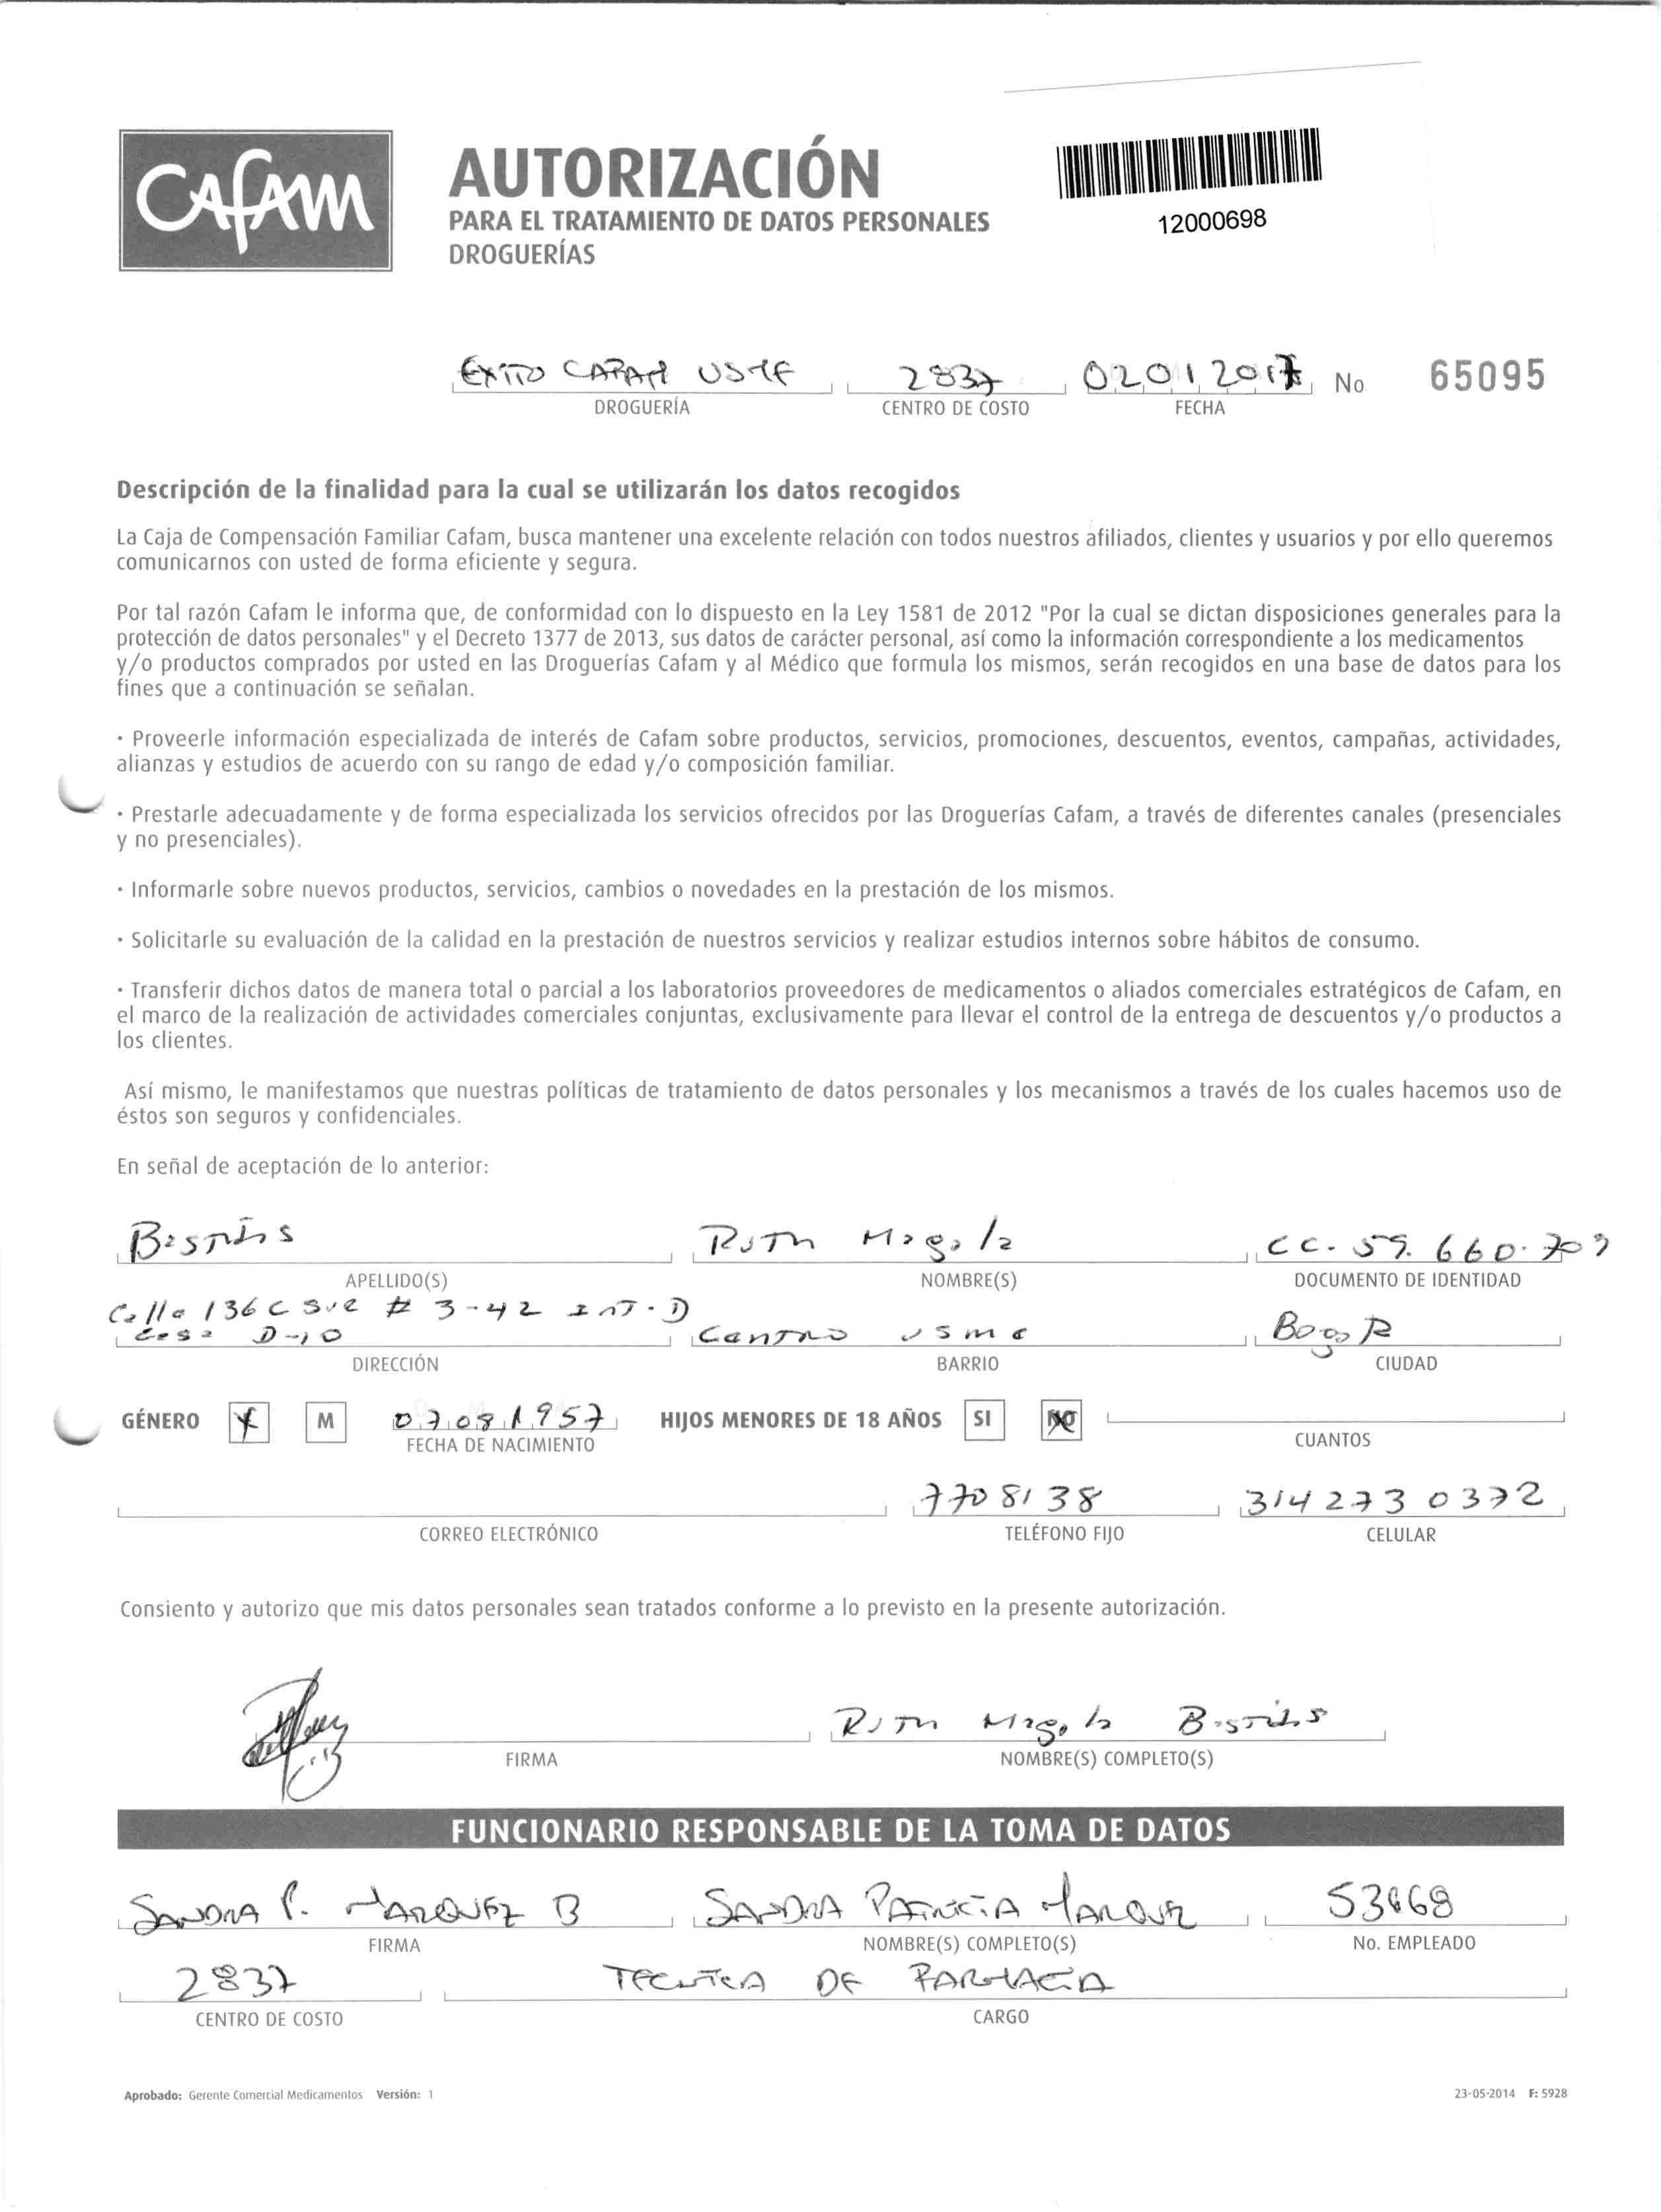 Cafam
AUTORIZACIÓN
PARA EL TRATAMIENTO DE DATOS PERSONALES
DROGUERÍAS
12000698
EXITO CAFAM USME 2837 02012017 No 65095
DROGUERÍA CENTRO DE COSTO FECHA
Descripción de la finalidad para la cual se utilizarán los datos recogidos
La Caja de Compensación Familiar Cafam, busca mantener una excelente relación con todos nuestros afiliados, clientes y usuarios y por ello queremos
comunicarnos con usted de forma eficiente y segura.
Por tal razón Cafam le informa que, de conformidad con lo dispuesto en la Ley 1581 de 2012 "Por la cual se dictan disposiciones generales para la
protección de datos personales" y el Decreto 1377 de 2013, sus datos de carácter personal, así como la información correspondiente a los medicamentos
y/o productos comprados por usted en las Droguerías Cafam y al Médico que formula los mismos, serán recogidos en una base de datos para los
fines que a continuación se señalan.
· Proveerle información especializada de interés de Cafam sobre productos, servicios, promociones, descuentos, eventos, campañas, actividades,
alianzas y estudios de acuerdo con su rango de edad y/o composición familiar.
· Prestarle adecuadamente y de forma especializada los servicios ofrecidos por las Droguerías Cafam, a través de diferentes canales (presenciales
y no presenciales).
· Informarle sobre nuevos productos, servicios, cambios o novedades en la prestación de los mismos.
· Solicitarle su evaluación de la calidad en la prestación de nuestros servicios y realizar estudios internos sobre hábitos de consumo.
· Transferir dichos datos de manera total o parcial a los laboratorios proveedores de medicamentos o aliados comerciales estratégicos de Cafam, en
el marco de la realización de actividades comerciales conjuntas, exclusivamente para llevar el control de la entrega de descuentos y/o productos a
los clientes.
Así mismo, le manifestamos que nuestras políticas de tratamiento de datos personales y los mecanismos a través de los cuales hacemos uso de
éstos son seguros y confidenciales.
En señal de aceptación de lo anterior:
Ruth Magola CC. 59.660.709
APELLIDO(S) NOMBRE(S) DOCUMENTO DE IDENTIDAD
Calle 136 C Sur # 3-42 INT. D
Casa D-10 Centro usme Bogota
DIRECCIÓN BARRIO CIUDAD
GÉNERO M 07081957 HIJOS MENORES DE 18 AÑOS SI NO
FECHA DE NACIMIENTO CUANTOS
7708138 314 273 0372
CORREO ELECTRÓNICO TELÉFONO FIJO CELULAR
Consiento y autorizo que mis datos personales sean tratados conforme a lo previsto en la presente autorización.
Ruth Magola
FIRMA NOMBRE(S) COMPLETO(S)
FUNCIONARIO RESPONSABLE DE LA TOMA DE DATOS
SANDRA P. MARQUEZ B SANDRA PATRICIA MARQUEZ 53668
FIRMA NOMBRE(S) COMPLETO(S) No. EMPLEADO
2837 TECNICA DE FARMACIA
CENTRO DE COSTO CARGO
Aprobado: Gerente Comercial Medicamentos Versión: 1 23-05-2014 F: 5928